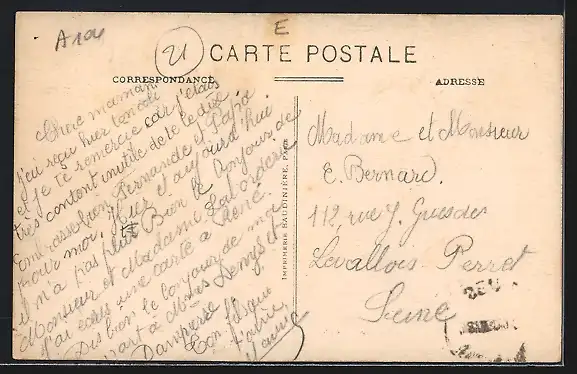 A 104
21
E
CARTE POSTALE
CORRESPONDANCE
ADRESSE
Chère maman
j'ai reçu hier ton coli
et je te remercie car j'étais
très content inutile de te le dire
Embrasse bien Fernande et Papa
pour moi. Hier et aujourd'hui
il n'a pas plu Bien le bonjour de
Monsieur et Madame Laborderie
J'ai écris une carte à René.
Dis bien le bonjour de ma
part à Mme Denys et
Dampierre
Ton fils que
t'aime
IMPRIMERIE BAUDINIÈRE, PARIS
Madame et Monsieur
E. Bernard.
112, rue J. Guesde
Levallois-Perret
Seine